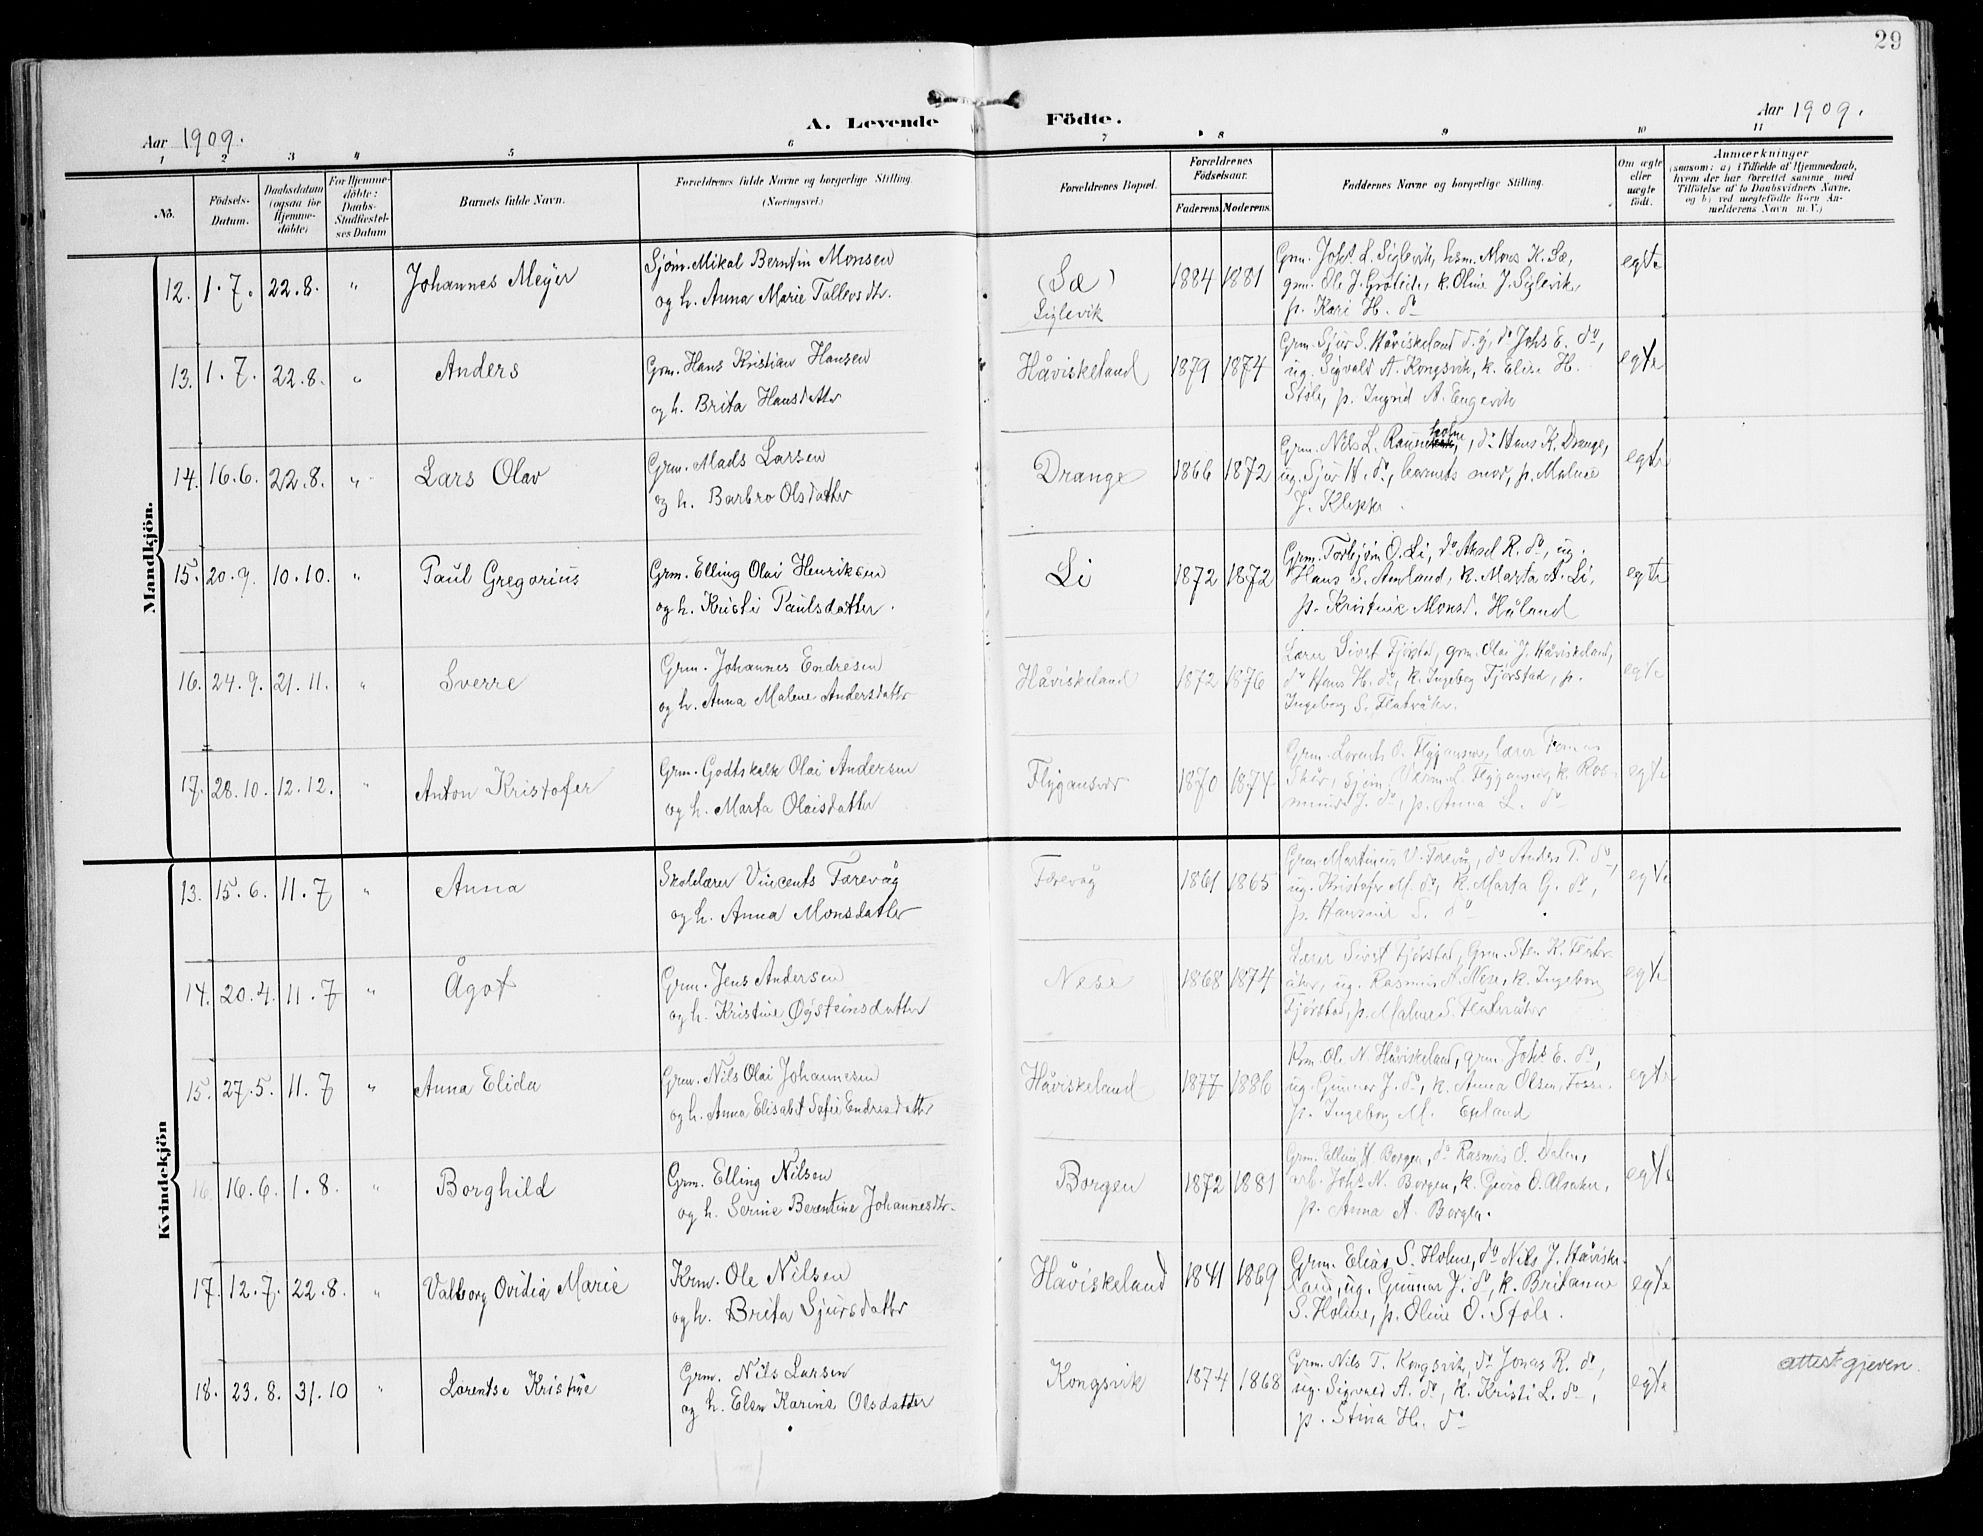 29
Aar 1909.
A. Levende Födte.
Aar 1909.
1 2 3 4 5 6 7 8 9 10 11
No.
Födsels-
Datum.
Daabsdatum
(ogsaa for
Hjemme-
döbte)
For Hjemme-
döbte:
Daabs-
Stadfæstel-
ses Datum
Barnets fulde Navn.
Forældrenes fulde Navne og borgerlige Stilling.
(Næringsvei.)
Forældrenes Bopæl.
Forældrenes
Födselsaar.
Faderens. Moderens.
Faddernes Navne og borgerlige Stilling.
Om ægte
eller
uægte
födt.
Anmærkninger
(saasom: a) i Tilfælde af Hjemmedaab,
hvem der har forrettet samme med
Tilföielse af to Daabsvidners Navne,
og b) ved uægtefödte Börn An-
melderens Navn m. V.)
Mandkjön.
12. 1.7. 22.8. " Johannes Meyer
Sjøm. Mikal Berntin Monsen
og h. Anna Marie Tollevsdtr.
(Sæ)
Siglevik
1884 1881
Grm. Johs L. Siglevik, hsm. Mons K. Sæ,
grm. Ole J. Grøteide, k. Oline J. Siglevik
p. Kari H. do
egte
13. 1.7. 22.8. " Anders
Grm. Hans Kristian Hansen
og h. Brita Hansdatter
Håviskeland 1879 1874
Grm. Sjur S. Håviskeland d.y., do Johs E. do,
ug. Sigvald A. Kongsvik, k. Elise H.
Støle, p. Ingrid A. Engevik
egte
14. 16.6. 22.8. " Lars Olav
Grm. Mads Larsen
og h. Barbro Olsdatter
Drange 1866 1872
Grm. Nils L. holme, do Hans K. Drange,
ug. Sjur H. do, barnets mor, p. Malene
J. Kleppe.
egte
15. 20.9. 10.10. " Paul Gregorius
Grm. Elling Olai Henriksen
og h. Kristi Paulsdatter.
Li 1872 1872
Grm. Torbjørn O. Li, do Aksel R. do, ug.
Hans S. Amland, k. Marta A. Li,
p. Kristine Monsd. Håland
egte
16. 24.9. 21.11. " Sverre
Grm. Johannes Endresen
og h. Anna Malene Andersdatter
Håviskeland 1872 1876
Lærer Sivert Fjørstad, grm. Olai J. Håviskeland,
do Hans H. do, k. Ingeborg Fjørstad, p.
Ingeborg S. Flatråker.
egte
17. 28.10. 12.12. " Anton Kristofer
Grm. Godtskalk Olai Andersen
og h. Marta Olaisdatter
Flygansvær 1870 1874
Grm. Lorents O. Flygansvær, lærer Tomas
sjøm. L. Flygansvær, k. Ras-
mine J. do, p. Anna L. do
egte
Kvindekjön
13. 15.6. 11.7 " Anna
Skolelærer Vincents Færevåg
og h. Anna Monsdatter
Færevåg 1861 1865
Grm. Martinus V. Færevåg, do Anders P. do,
ug. Kristofer M. do, k. Marta G. do,
p. Hansine S. do
egte
14. 20.4. 11.7 " Ågot
Grm. Jens Andersen
og h. Kristine Øysteinsdatter
Nese 1868 1874
Lærer Sivert Fjørstad, Grm. Sten K. Flatr-
åker, ug. Rasmus A. Nese, k. Ingeborg
Fjørstad, p. Malene S. Flatråker
egte
15. 27.5. 11.7 " Anna Elida
Grm. Nils Olai Johannesen
og h. Anna Elisabet Sofie Endresdatter
Håviskeland 1877 1886
Krm. Ole N. Håviskeland, grm. Johs E. do,
ug. Gunnar J. do, k. Anna Olsen, Fosse.
p. Ingeborg M. Epland
egte
16. 16.6. 1.8. " Borghild
Grm. Elling Nilsen
og h. Serine Berentine Johannesdtr.
Borgen 1872 1881
Grm. Elling H. Borgen, do Rasmus O. Dalen,
arb. Johs N. Borgen, k. Guro O. Alsaker,
p. Anna A. Borgen.
egte
17. 12.7. 22.8. " Valborg Ovidia Marie
Krm. Ole Nilsen
og h. Brita Sjursdatter
Håviskeland 1841 1869
Grm. Elias S. Holme, do Nils J. Håviske-
land, ug. Gunnar J. do, k. Britanne
S. Holme, p. Oline O. Støle.
egte
18. 23.8. 31.10 " Lorentse Kristine
Grm. Nils Larsen
og h. Elen Karine Olsdatter
Kongsvik 1874 1868
Grm. Nils T. Kongsvik, do Jonas R. do,
ug. Sigvald A. do, k. Kristi L. do,
p. Stina H. do
egte
attest gjeven.